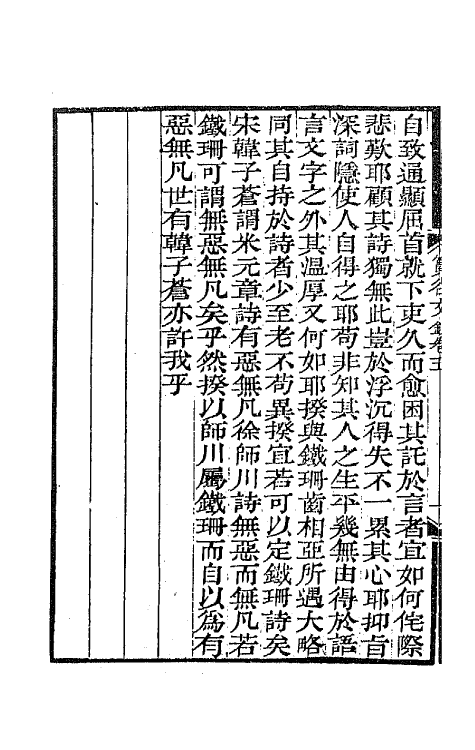 自致通顯屈首就下吏久而愈困其託於言者宜如何侘際
悲歎耶顧其詩獨無此豈於浮沉得失不一累其心耶抑旨
深詞隱使人自得之耶苟非知其人之生平幾無由得於語
言文字之外其溫厚又何如耶揆與鐵珊齒相亞所遇大略
同其自持於詩者少至老不苟異揆宜若可以定鐵珊詩矣
宋韓子蒼謂米元章詩有惡無凡徐師川詩無惡而無凡若
鐵珊可謂無惡無凡矣乎然揆以師川屬鐵珊而自以爲有
惡無凡世有韓子蒼亦許我乎